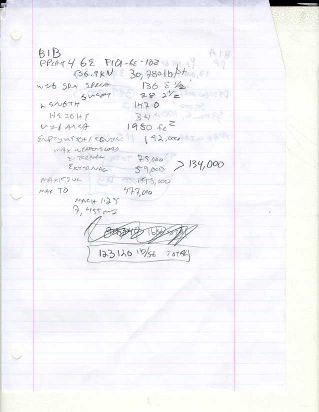 B1B
PPONT 4 GE F101-GE-102
136.9KN 30,780 lb/ft
WING SPN SPREAD 136 8 1/2
SWEPT 78 2 1/2
LENGTH 147.0
HEIGHT 34
WING AREA 1980 ft2
EMPTY WEIGHT/EQUIPPED 192,000
MAX WEAPONS LOAD
INTERNAL 75,000
EXTERNAL 59,000 > 134,000
MAX FUEL 195,000
MAX TO 477,000
MACH 1.25
7,455 mi
123120 lb/st TOTAL